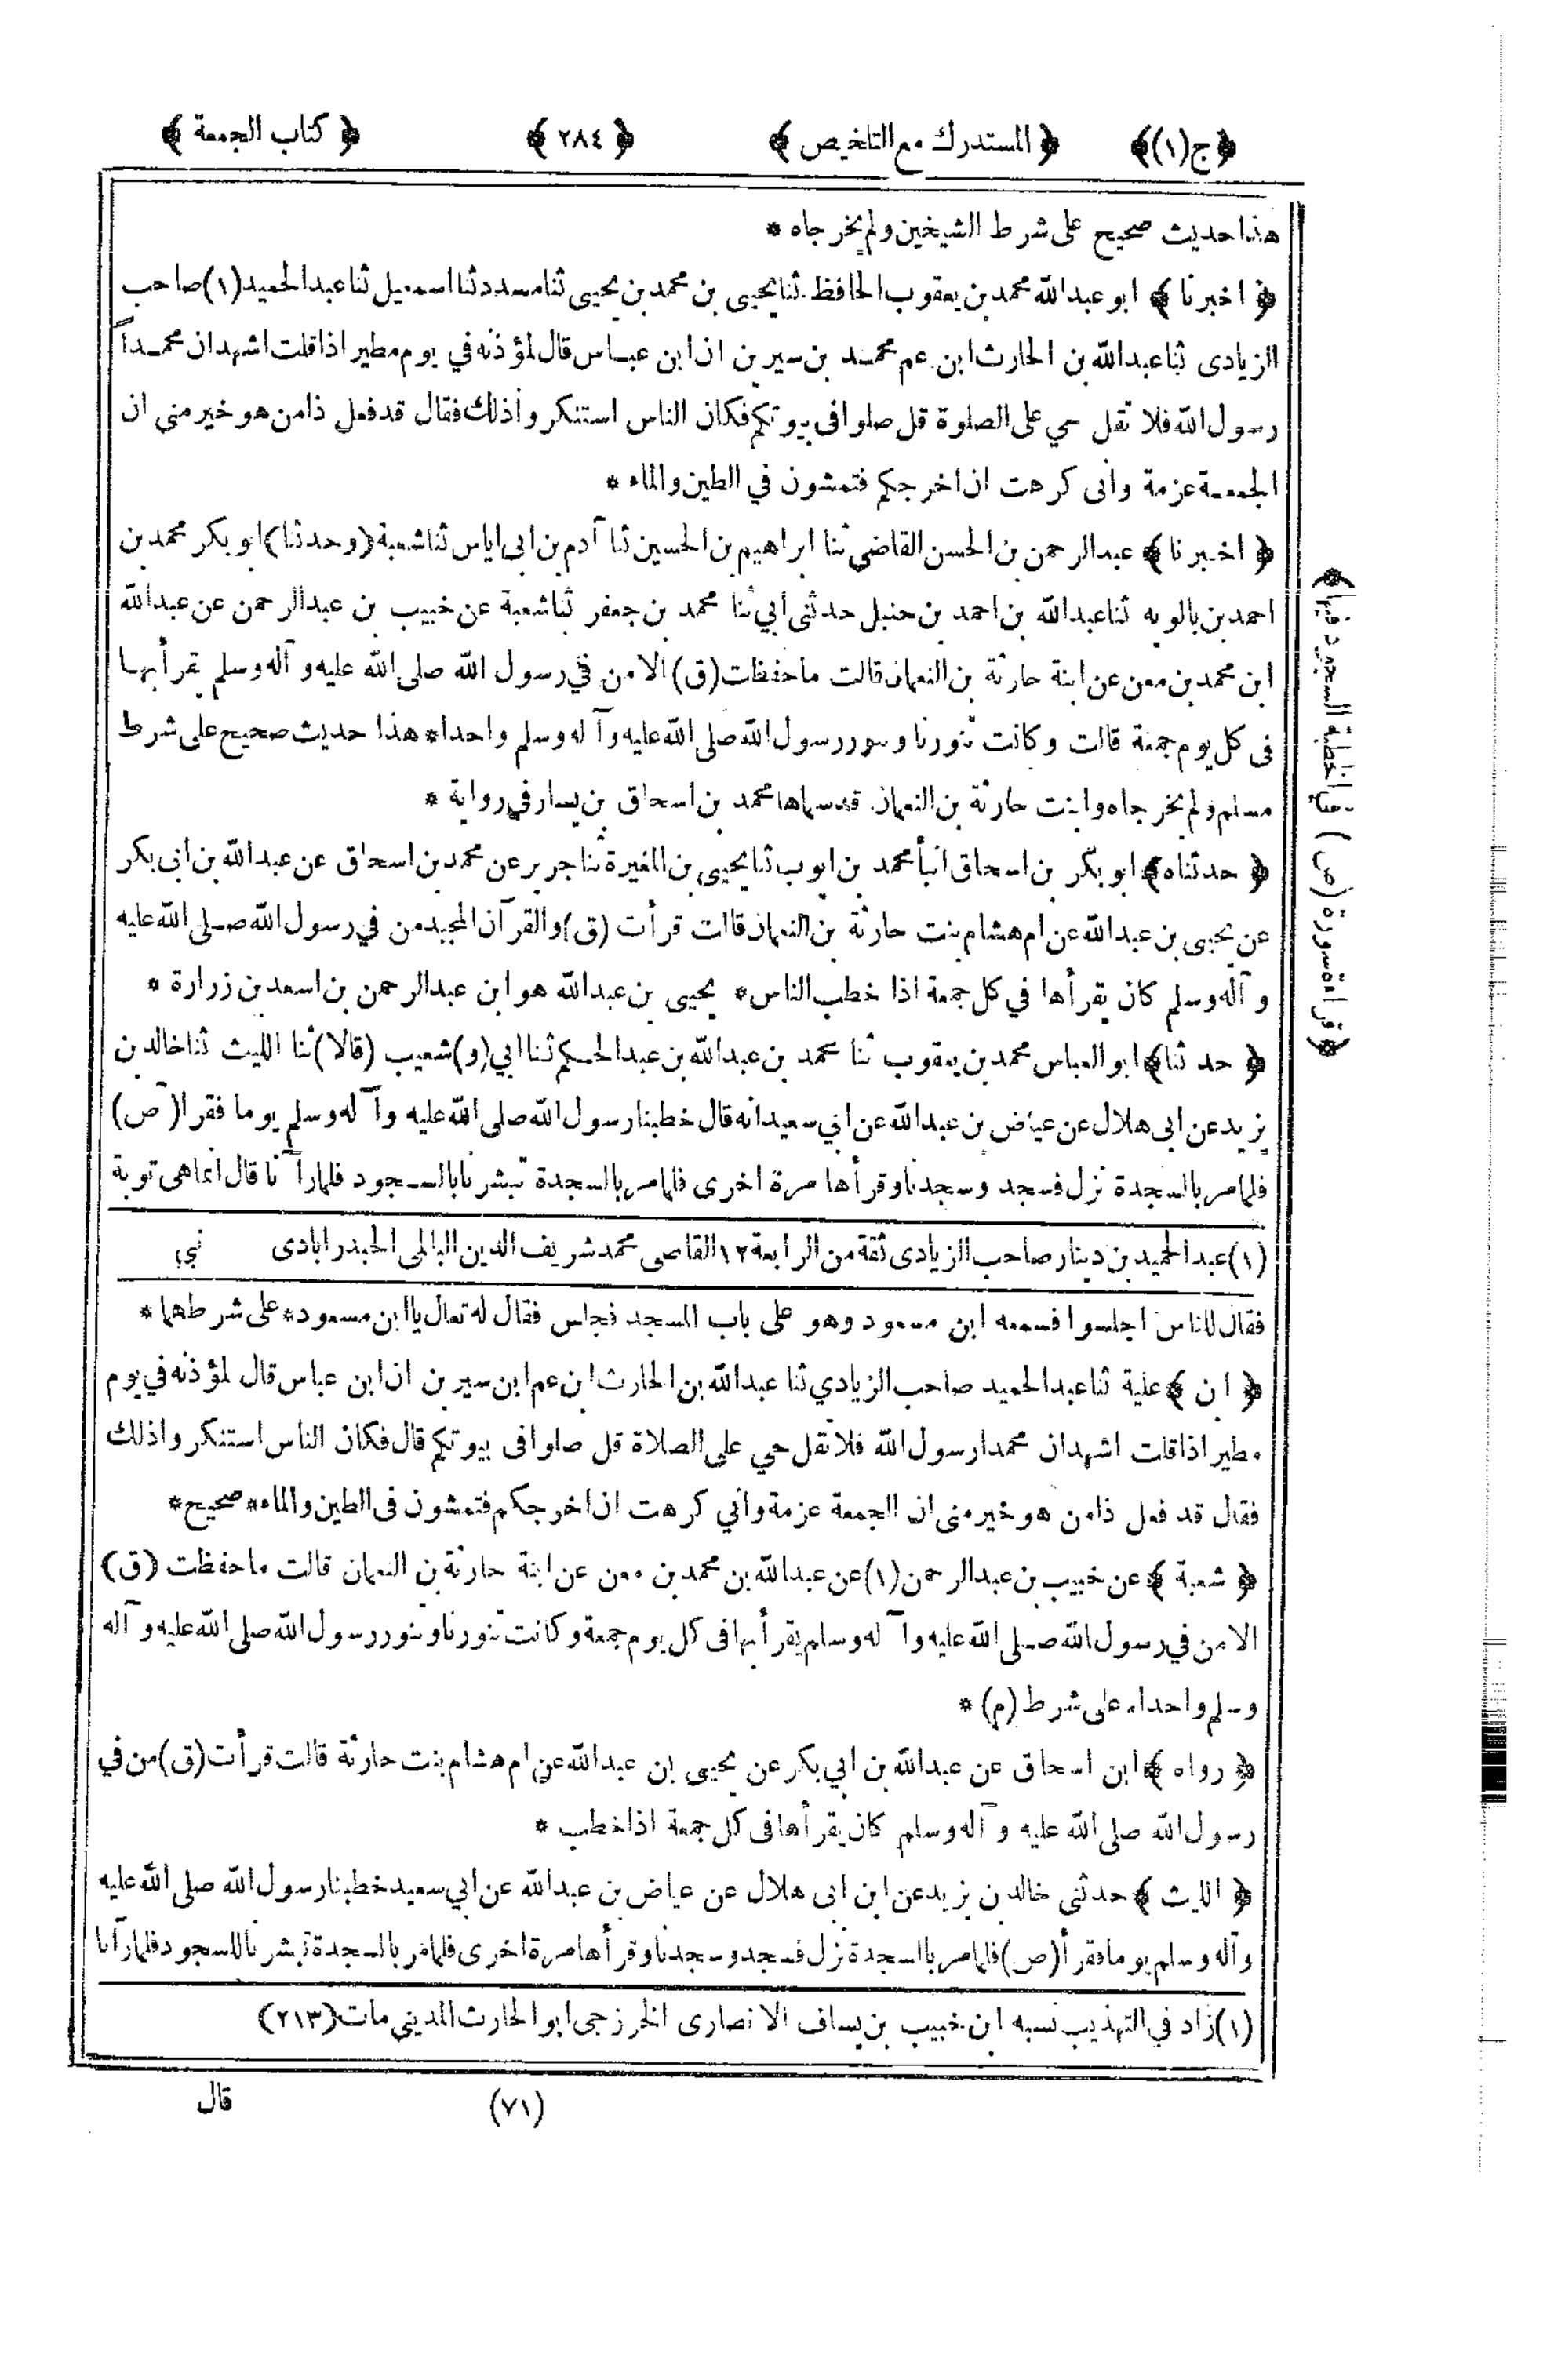 ﴿ ج (١) ﴾ ﴿ المستدرك مع التلخيص ﴾ ﴿ ٢٨٤ ﴾ ﴿ كتاب الجمعة ﴾
هذا حديث صحيح على شرط الشيخين ولم يخرجاه *
﴿ اخبرنا ﴾ ابو عبد الله محمد بن يعقوب الحافظ ثنا يحيى بن محمد بن يحيى ثنا مسدد ثنا اسمعيل ثنا عبد الحميد (١) صاحب
الزيادى ثنا عبد الله بن الحارث ابن عم محمد بن سيرين ان ابن عباس قال لمؤذنه في يوم مطير اذا قلت اشهد ان محمداً
رسول الله فلا تقل حي على الصلوة قل صلوا فى بيوتكم فكان الناس استنكروا ذلك فقال قد فعل ذا من هو خير منى ان
الجمعة عزمة وانى كرهت ان اخرجكم فتمشون في الطين والماء *
﴿ اخبرنا ﴾ عبد الرحمن بن الحسن القاضي ثنا ابراهيم بن الحسين ثنا آدم بن ابى اياس ثنا شعبة (وحدثنا) ابو بكر محمد بن
احمد بن بالويه ثنا عبد الله بن احمد بن حنبل حدثنى أبي ثنا محمد بن جعفر ثنا شعبة عن خبيب بن عبد الرحمن عن عبد الله
ابن محمد بن معن عن ابنة حارثة بن النعمان قالت ما حفظت (ق) الا من في رسول الله صلى الله عليه وآله وسلم يقرأ بها
فى كل يوم جمعة قالت وكانت تنورنا وتنور رسول الله صلى الله عليه وآله وسلم واحدا* هذا حديث صحيح على شرط
مسلم ولم يخرجاه وابنت حارثة بن النعمان قد سماها محمد بن اسحاق بن يسار في رواية *
﴿ حدثناه ﴾ ابو بكر بن اسحاق انبأ محمد بن ايوب ثنا يحيى بن المغيرة ثنا جرير عن محمد بن اسحاق عن عبد الله بن ابى بكر
عن يحيى بن عبد الله عن ام هشام بنت حارثة بن النعمان قالت قرأت (ق) والقرآن المجيد من في رسول الله صلى الله عليه
وآله وسلم كان يقرأها في كل جمعة اذا خطب الناس* يحيى بن عبد الله هو ابن عبد الرحمن بن اسعد بن زرارة *
﴿ حدثنا ﴾ ابو العباس محمد بن يعقوب ثنا محمد بن عبد الله بن عبد الحكم ثنا ابي (و) شعيب (قالا) ثنا الليث ثنا خالد بن
يزيد عن ابى هلال عن عياض بن عبد الله عن ابي سعيد انه قال خطبنا رسول الله صلى الله عليه وآله وسلم يوما فقرا (ص)
فلما مر بالسجدة نزل فسجد وسجدنا وقرأها مرة اخرى فلما مر بالسجدة تبشرنا بالسجود فلما رآنا قال انما هى توبة
﴿ قراءة سورة (ص) في الخطبة السجود فيها ﴾
(١) عبد الحميد بن دينار صاحب الزيادى ثقة من الرابعة ١٢ القاصى محمد شريف الدين البالمى الحيدرابادى نبي
فقال للناس اجلسوا فسمعه ابن مسعود وهو على باب المسجد فجلس فقال له تعال يا ابن مسعود* على شرطهما *
﴿ ابن ﴾ علية ثنا عبد الحميد صاحب الزيادي ثنا عبد الله بن الحارث ابن عم ابن سيرين ان ابن عباس قال لمؤذنه في يوم
مطير اذا قلت اشهد ان محمدا رسول الله فلا تقل حي على الصلاة قل صلوا فى بيوتكم قال فكان الناس استنكروا ذلك
فقال قد فعل ذا من هو خير منى ان الجمعة عزمة وأني كرهت ان اخرجكم فتمشون فى الطين والماء* صحيح*
﴿ شعبة ﴾ عن خبيب بن عبد الرحمن (١) عن عبد الله بن محمد بن معن عن ابنة حارثة بن النعمان قالت ما حفظت (ق)
الا من في رسول الله صلى الله عليه وآله وسلم يقرأ بها فى كل يوم جمعة وكانت تنورنا وتنور رسول الله صلى الله عليه وآله
وسلم واحدا* على شرط (م) *
﴿ رواه ﴾ ابن اسحاق عن عبد الله بن ابي بكر عن يحيى بن عبد الله عن ام هشام بنت حارثة قالت قرأت (ق) من في
رسول الله صلى الله عليه وآله وسلم كان يقرأها فى كل جمعة اذا خطب *
﴿ الليث ﴾ حدثنى خالد بن يزيد عن ابن ابى هلال عن عياض بن عبد الله عن ابي سعيد خطبنا رسول الله صلى الله عليه
وآله وسلم يوما فقرأ (ص) فلما مر بالسجدة نزل فسجد وسجدنا وقرأها مرة اخرى فلما مر بالسجدة تبشرنا للسجود فلما رآنا
(١) زاد في التهذيب نسبه ابن خبيب بن يساف الانصارى الخزرجى ابو الحارث المديني مات (٢١٣)
(٧١) قال